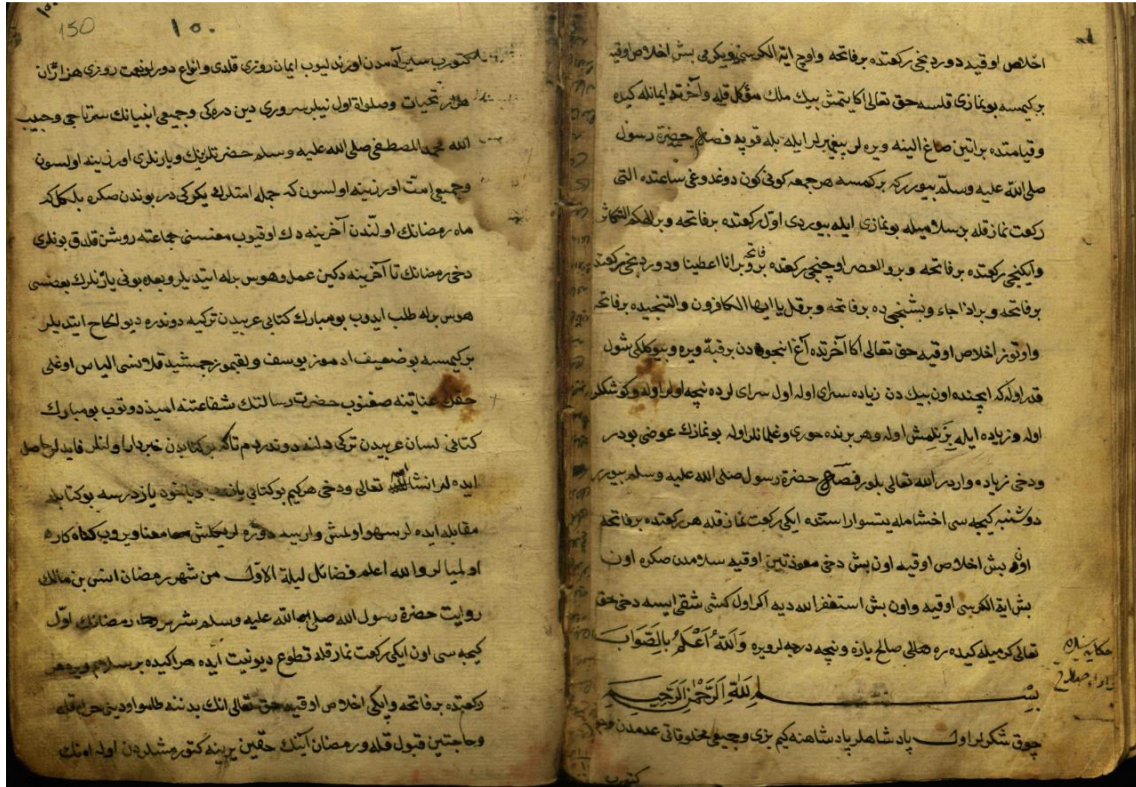 اخلاص اوقیه دوردنجی رکعتده بر فاتحه و اوچ ایة الکرسی و یکرمی بش اخلاص اوقیه
بر کیمسه بو نمازی قلسه حق تعالی اکا یتمش بیك ملك مؤکل قیله و آخرتده ایمانله کیده
و قیامتده براتین صاغ الینه ویره لر پیغمبرلر ایله بله قوپه فصل حضرة رسول
صلی الله علیه وسلم بیوررکه بر کمسه هر جمعه کونی کون دوغدوغی ساعتده التی
رکعت نماز قله بر سلامیله بو نمازی ایله بیوردی اول رکعتده بر فاتحه و بر الهکم التکاثر
وایکنجی رکعتده بر فاتحه و بر والعصر اوچنجی رکعتده بر فاتحه و بر انا اعطینا و دوردنجی رکعتده
بر فاتحه و بر اذا جاء و بشنجی ده بر فاتحه و بر قل یا ایها الکافرون و التنجیده بر فاتحه
و اوتوز اخلاص اوقیه حق تعالی اکا آخرتده آغ انجودن بر قبه ویره و بیوکلکی شول
قدر اوله که ایچنده اون بیك دن زیاده سرای اوله اول سرای لرده نیچه اولر اوله و کوشکلر
اوله و زیاده ایله بزنلمش اوله و هر برنده حوری و غلمانلر اوله بو نمازك عوضی بودر
ودخی زیاده واردر الله تعالی بلور فصل حضرة رسول صلی الله علیه وسلم بیورر
دوشنبه کیجه سی اخشامله یتسو اراسنده ایکی رکعت نماز قله هر رکعتده بر فاتحه
اون بش اخلاص اوقیه اون بش دخی معوذتین اوقیه سلامدن صکره اون
بش ایة الکرسی اوقیه و اون بش استغفر الله دیه اکر اول کشی شقی ایسه دخی حق
تعالی کرمیله صالح یازه و نیچه درجه لر ویره والله اعلم بالصواب
بسم الله الرحمن الرحیم
چوق شکرلر اول پادشاهلر پادشاهنه کیم بزی و جمیع مخلوقاتی عدمدن وجو
کتورب
150
۱۰۰
کتورب اورندلیوب ایمان روزی قلدی و انواع دورلو نعمت روزی هزاران
هزار تحیات و صلوات اول نبیلر سروری دین دره کی و جمیع انبیانك سرتاجی و حبیب
الله محمد المصطفی صلی الله علیه وسلم حضرتلرینك و یارنلری اوزرینه اولسون
و جمیع امت اوزرینه اولسون که جمله امتلریه یکرکی در بوندن صکره بلکل که
ماه رمضانك اولندن آخرینه دك اوقیوب معنسنی جماعته روشن قلدق بونلری
دخی رمضانك تا آخرینه دکین عمل و هوس برله ایتدیلر و بعه بونی یارنلرك بعضسی
هوس برله طلب ایدوب بو مبارك کتابی عربیدن ترکیه دوندره دیو لحاح ایتدیلر
بر کیمسه بو ضعیف یوسف جمشید الیاس اوغلی
حقك عنایتنه صغنوب حضرت رسالتك شفاعتنه امید دوتوب بو مبارك
کتابی لسان عربیدن ترکی دلنه دوندردم تاکه بو کتابدن خبردار اولنلر فایده لر حاصل
ایده لر انشا الله تعالی و دخی هر کیم بو کتابی یازدرسه بو کتابله
مقابله ایده لر سهو اولمش وار ایسه دوزه لر معنا ویروب کناه کاره
اولمیالر والله اعلم فضائل لیلة الاول من شهر رمضان انس بن مالك
روایت حضرة رسول الله صلی الله علیه وسلم رمضانك اول
کیجه سی اون ایکی رکعت نماز قله تطوع دیو نیت ایده هر اکیده بر سلام ویره هر
رکعتده بر فاتحه و ایکی اخلاص اوقیه حق تعالی انك بدننه طامو اودینی حرام قله
و حاجتین قبول قله و رمضان آینك حقین یرینه کتورمشلردن اوله امتك